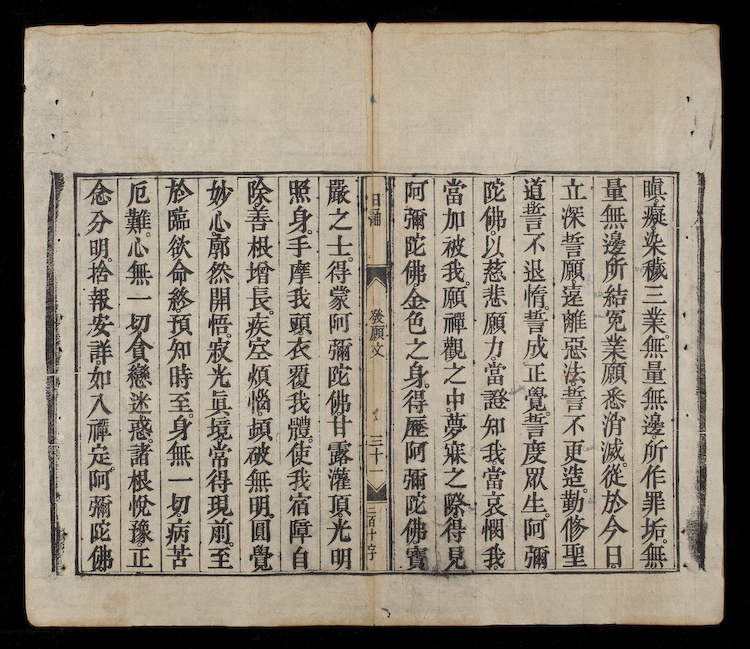 瞋癡染穢三業。無量無邊。所作罪垢。無
量無邊。所結冤業。願悉消滅。從於今日。
立深誓願。遠離惡法。誓不更造。勤修聖
道。誓不退惰。誓成正覺。誓度眾生。阿彌
陀佛。以慈悲願力。當證知我。當哀憫我。
當加被我。願禪觀之中。夢寐之際。得見
阿彌陀佛。金色之身。得歷阿彌陀佛。寶
日誦 發願文 三十一 二百十字
嚴之土。得蒙阿彌陀佛。甘露灌頂。光明
照身。手摩我頭。衣覆我體。使我宿障自
除。善根增長。疾空煩惱。頓破無明。圓覺
妙心。廓然開悟。寂光真境。常得現前。至
於臨欲命終。預知時至。身無一切。病苦
厄難。心無一切。貪戀迷惑。諸根悅豫。正
念分明。捨報安詳。如入禪定。阿彌陀佛。